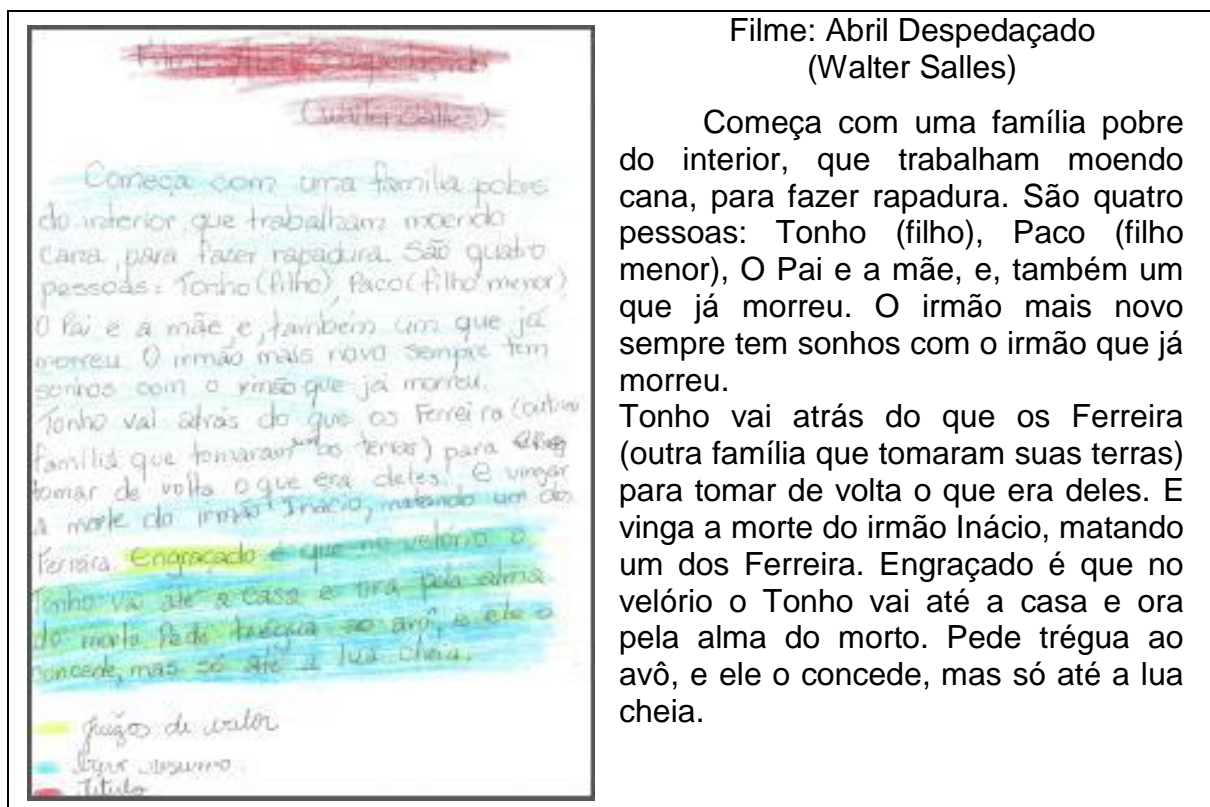 Filme: Abril Despedaçado
(Walter Salles)
Começa com uma família pobre
do interior, que trabalham moendo
cana, para fazer rapadura. São quatro
pessoas: Tonho (filho), Paco (filho menor)
O Pai e a mãe e, também um que já
morreu. O irmão mais novo sempre tem
sonhos com o irmão que já morreu.
Tonho vai atrás do que os Ferreira (outra
família que tomaram terras) para
tomar de volta o que era deles. E vingar
a morte do irmão Inácio, matando um dos
Ferreira. Engraçado é que no velório o
Tonho vai até a casa e ora pela alma
do morto. Pede trégua ao avô, e ele o
concede, mas só até a lua cheia.
juízos de valor
resumo.
Título
Filme: Abril Despedaçado
(Walter Salles)
Começa com uma família pobre
do interior, que trabalham moendo
cana, para fazer rapadura. São quatro
pessoas: Tonho (filho), Paco (filho
menor), O Pai e a mãe, e, também um
que já morreu. O irmão mais novo
sempre tem sonhos com o irmão que já
morreu.
Tonho vai atrás do que os Ferreira
(outra família que tomaram suas terras)
para tomar de volta o que era deles. E
vinga a morte do irmão Inácio, matando
um dos Ferreira. Engraçado é que no
velório o Tonho vai até a casa e ora
pela alma do morto. Pede trégua ao
avô, e ele o concede, mas só até a lua
cheia.